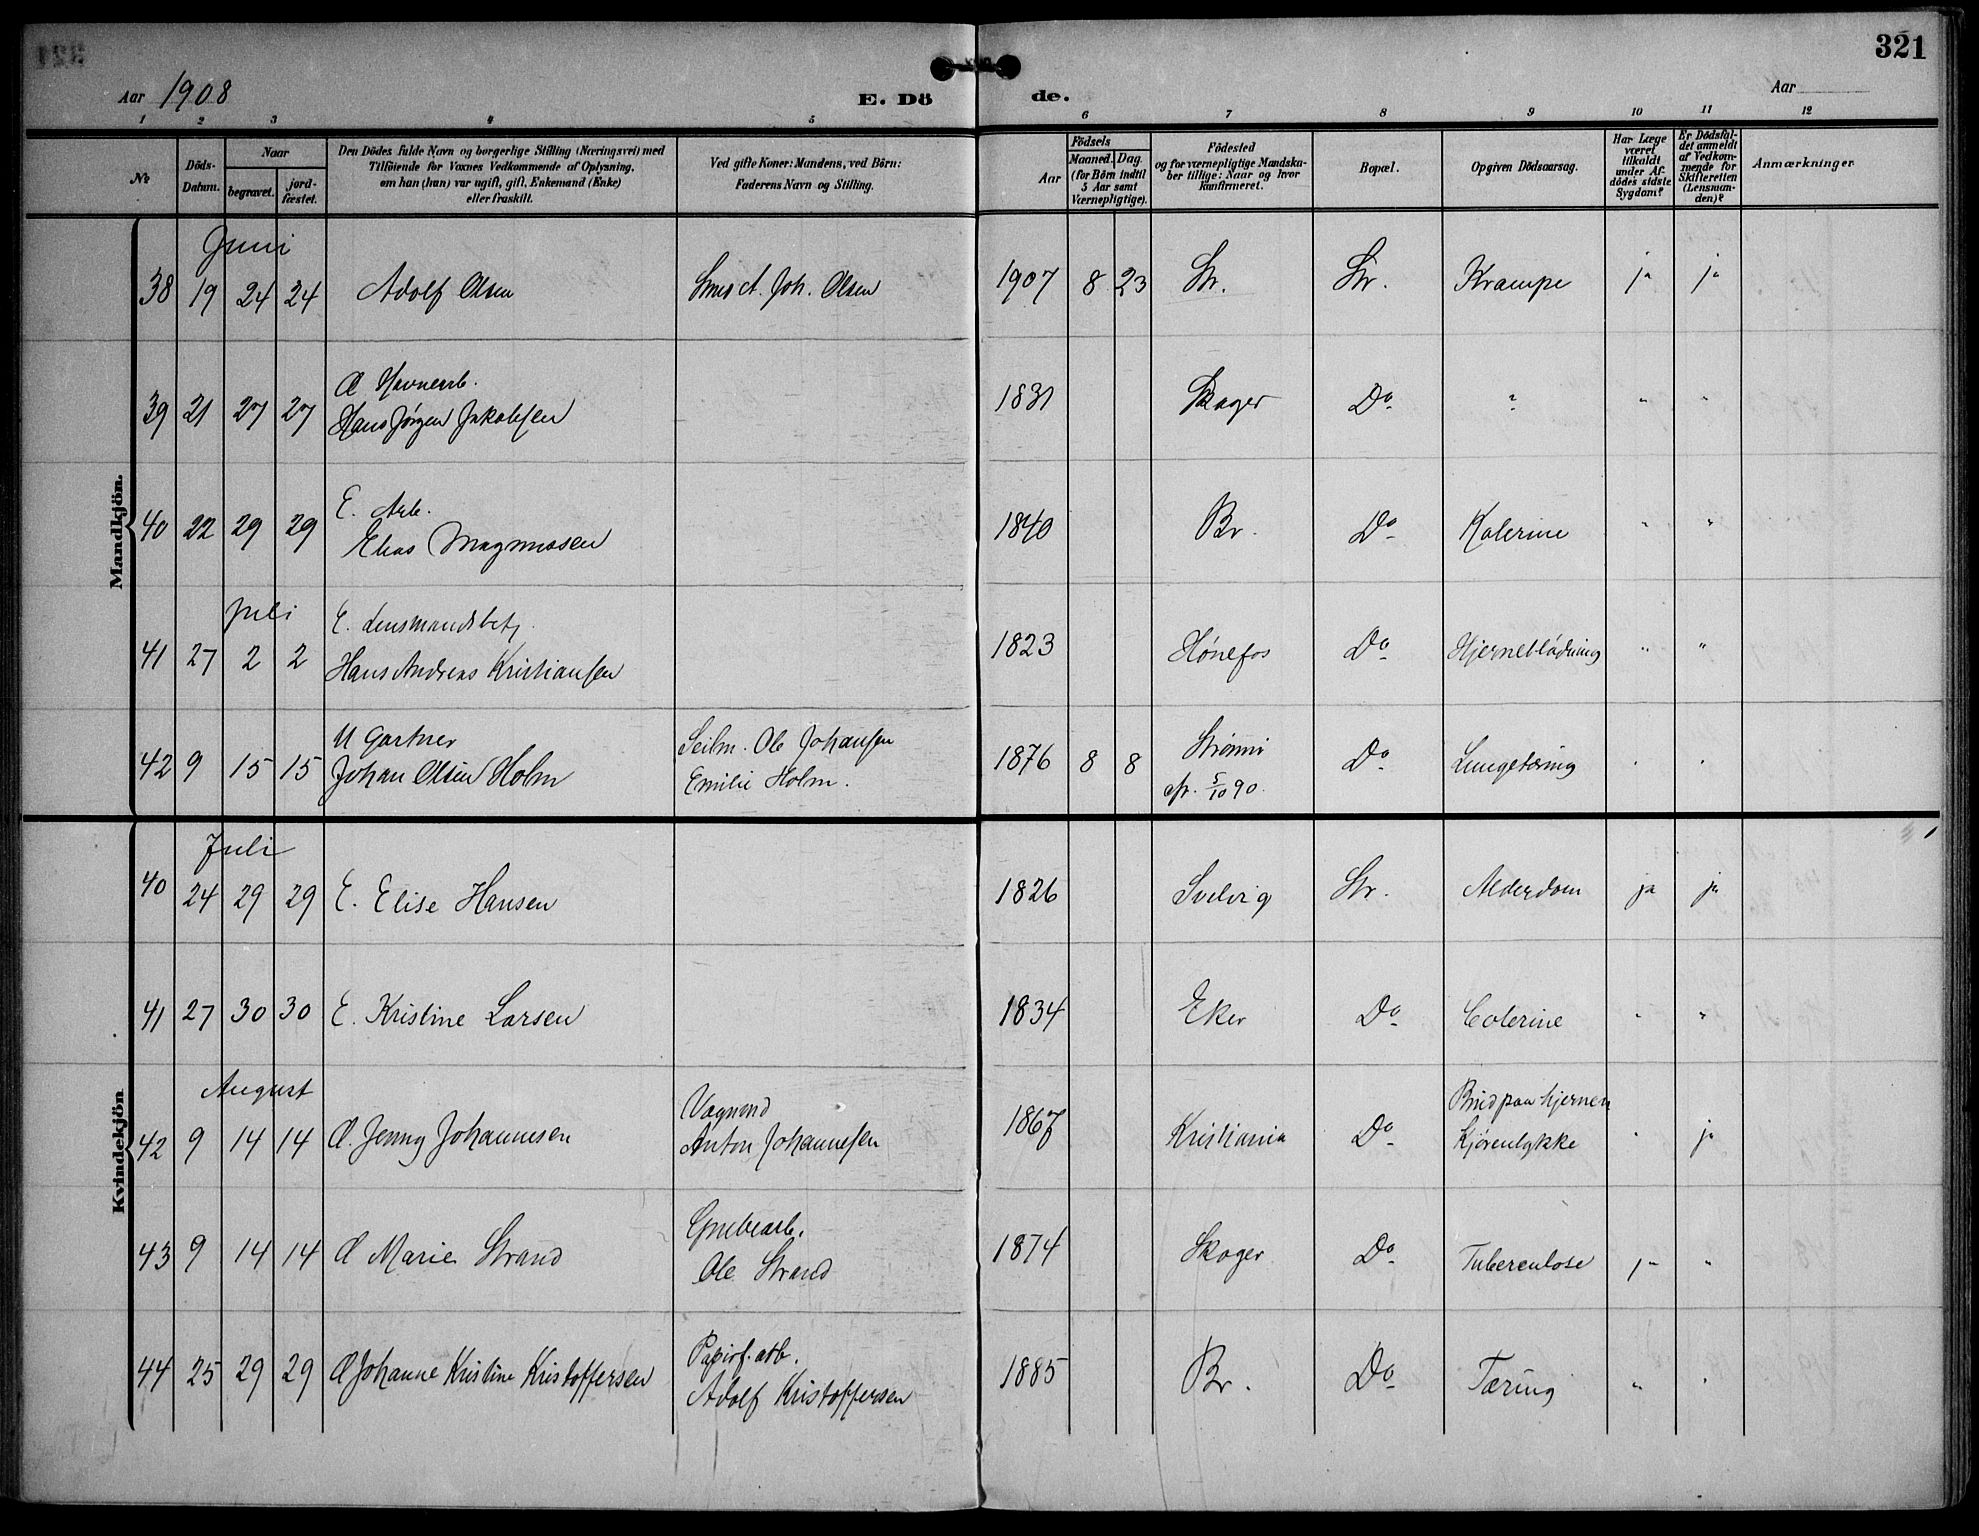 321
Aar 1908
E. Dö
de.
Aar
1 2 3 4 5 6 7 8 9 10 11 12
No
Döds-Datum.
Naar
begravet.
jord-fæstet.
Den Dödes fulde Navn og borgerlige Stilling (Næringsvei) med
Tilföiende for Voxnes Vedkommende af Oplysning,
om han (hun) var ugift, gift, Enkemand (Enke)
eller fraskilt.
Ved gifte Koner: Mandens, ved Börn:
Faderens Navn og Stilling.
Födsels
Aar
Maaned. Dag.
(for Börn indtil
5 Aar samt
Værnepligtige).
Födested
og for værnepligtige Mandska-
ber tillige: Naar og hvor
konfirmeret.
Bopæl.
Opgiven Dödsaarsag.
Har Læge
været
tilkaldt
under Af-
dödes sidste
Sygdom?
Er Dödsfal-
det anmeldt
af Vedkom-
mende for
Skifteretten
(Lensman-
den)?
Anmærkninger
Mandkjön.
Juni
38 19 24 24 Adolf Olsen Smed A. Joh. Olsen 1907 8 23 Str. Str. Krampe ja ja
G Havnearb.
39 21 27 27 Hans Jörgen Jakobsen 1831 Skoger Do " " "
E. Arb.
40 22 29 29 Elias Magnussen 1840 Br. Do Kolerine " "
Juli
E. Lensmandsbetj.
41 27 2 2 Hans Andreas Kristiansen 1823 Hønefos Do Hjerneblødning " "
U Gartner
42 9 15 15 Johan Olsen Holm
Seilm. Ole Johansen
Emilie Holm.
1876 8 8 Strømsø Do Lungetæring " "
5/10 90.
Kvindekjön
Juli
40 24 29 29 E. Elise Hansen 1826 Svelvig Str. Alderdom ja ja
41 27 30 30 E. Kristine Larsen 1834 Eker Do Colerine " "
August
42 9 14 14 G. Jenny Johannesen
Vognmd
Anton Johannesen
1867 Kristiania Do
Brud paa hjernen
Kjøreulykke " ja
43 9 14 14 G Marie Strand
Grubearb.
Ole Strand
1874 Skoger Do Tuberculose ja "
44 25 29 29 G Johanne Kristine Kristoffersen
Papirf. arb.
Adolf Kristoffersen
1885 Br. Do Tæring " "